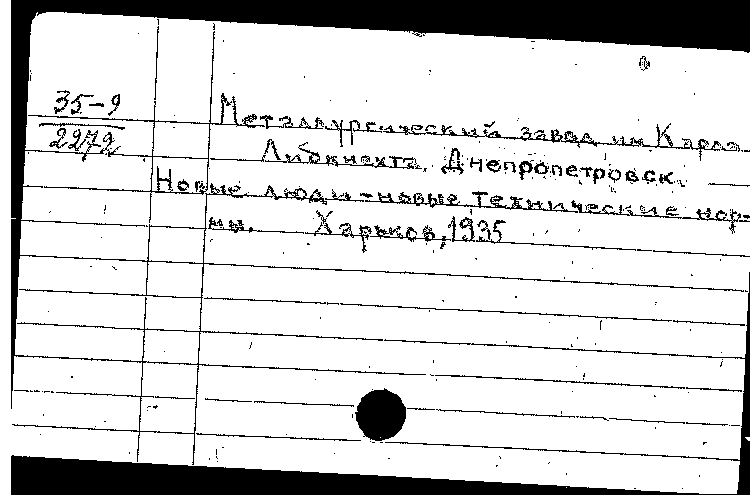 35-9
2272
Металлургический завод им Карла
Либкнехта, Днепропетровск.
Новые люди - новые технические нор-
мы. Харьков, 1935